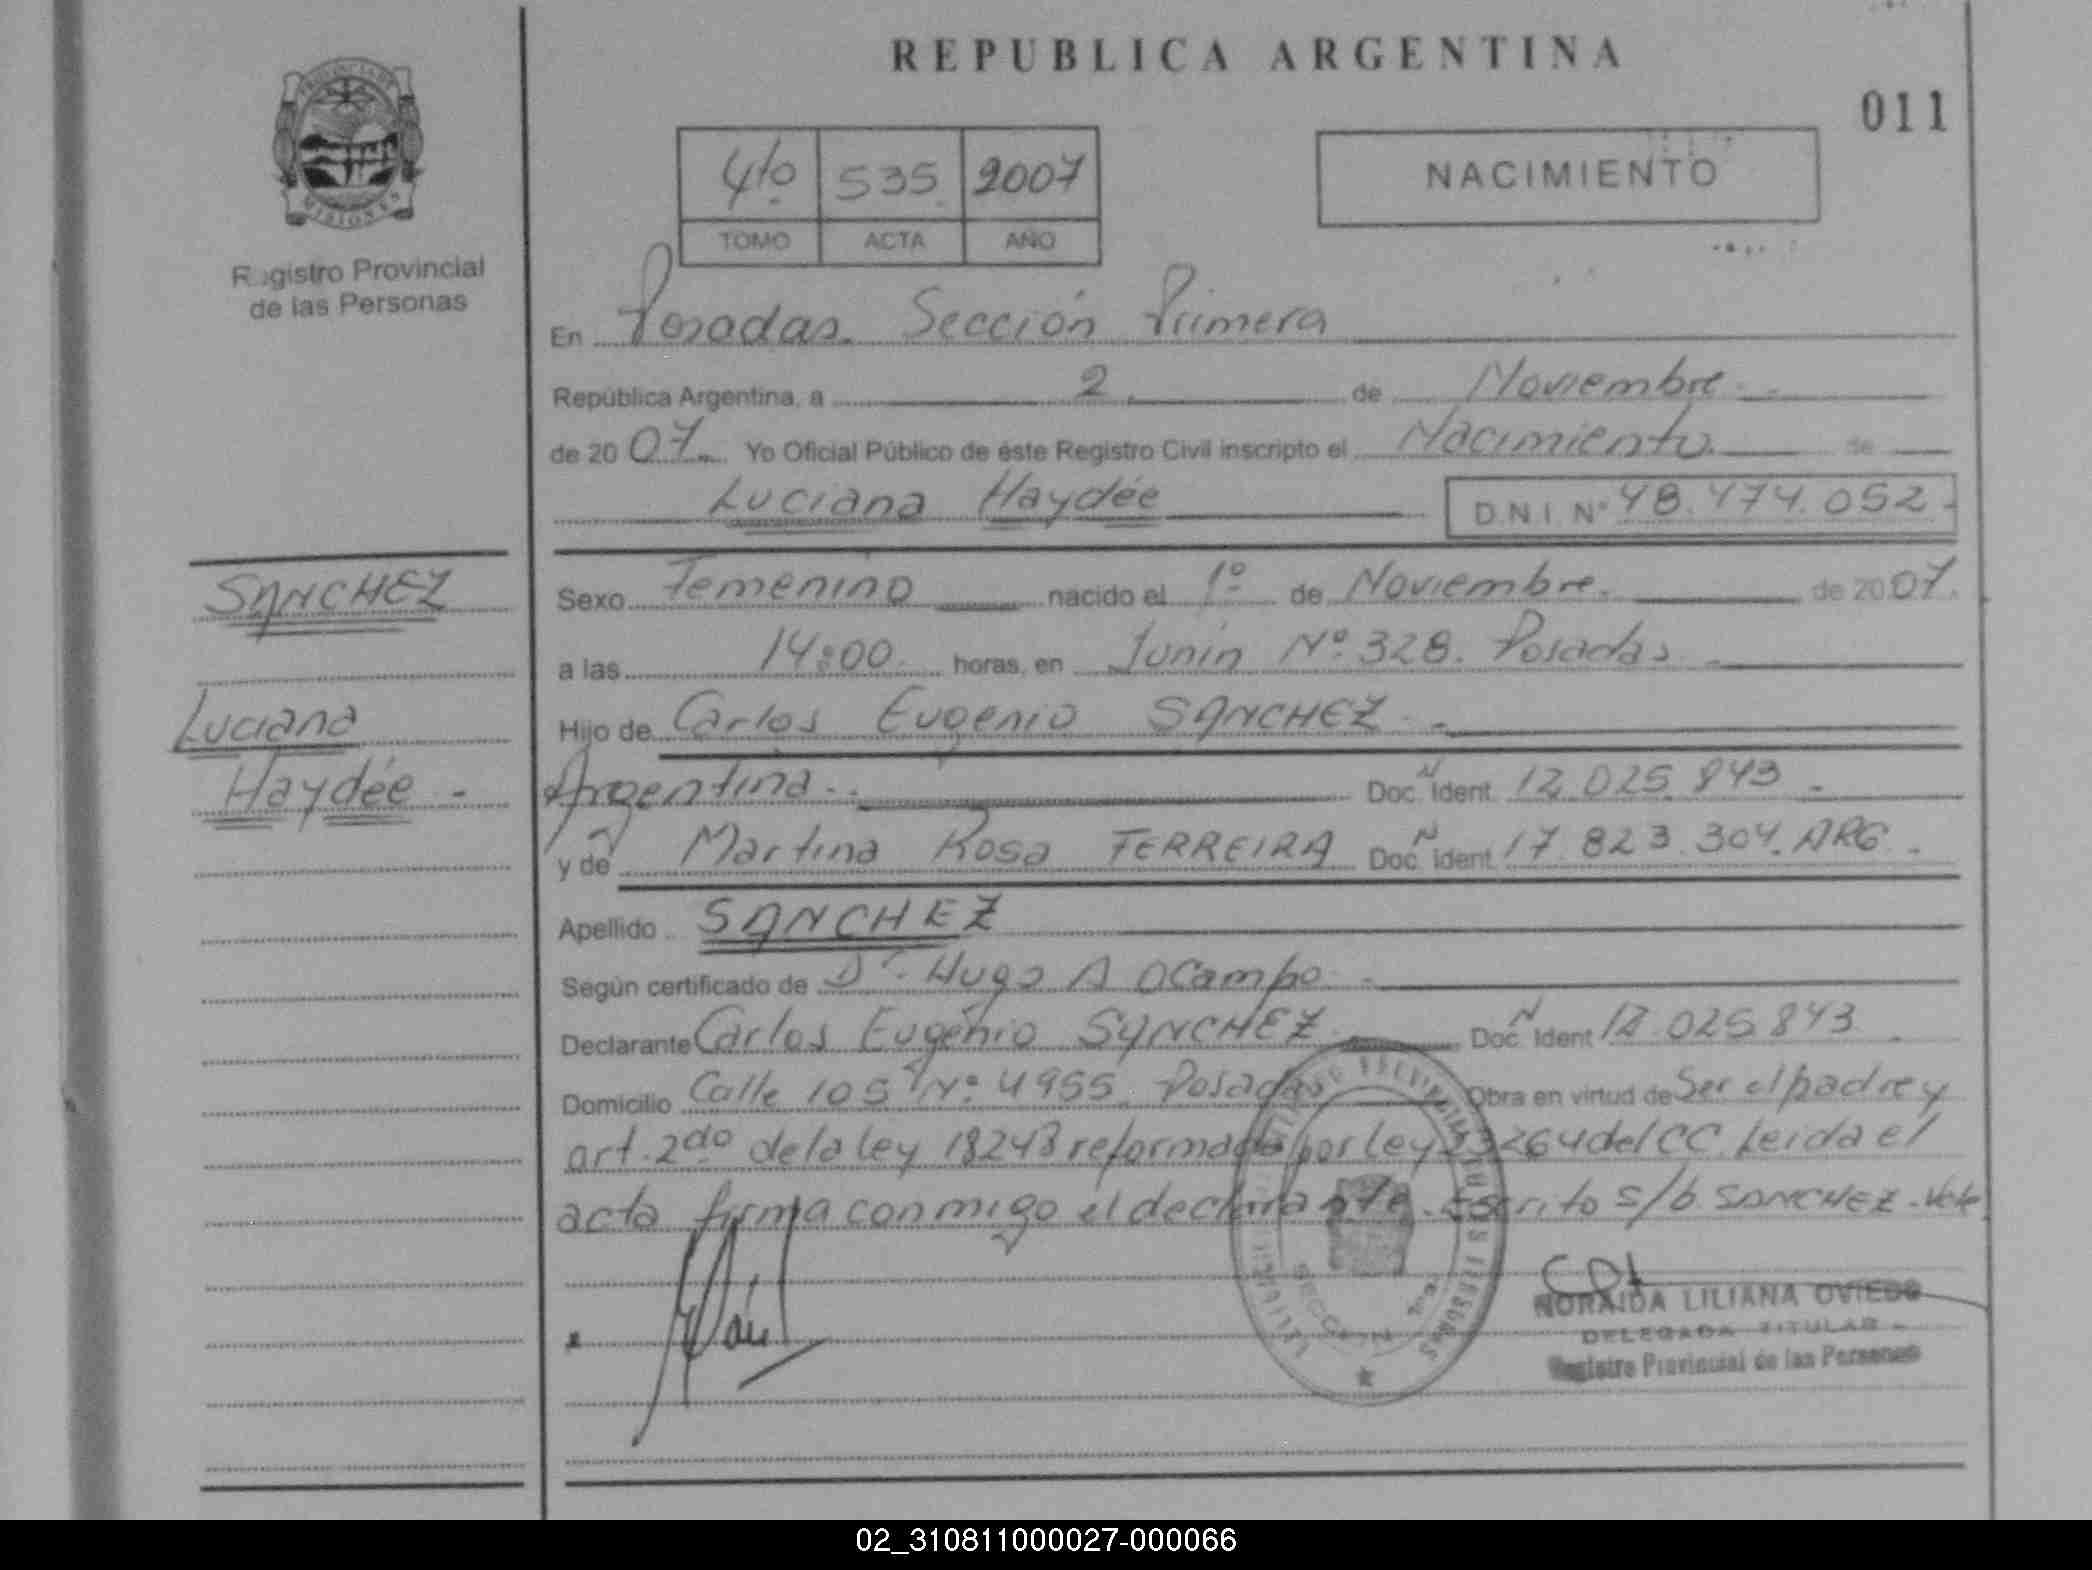 REPUBLICA ARGENTINA
011
PROVINCIA DE
MISIONES
Registro Provincial
de las Personas
4to 535 2007
TOMO ACTA AÑO
NACIMIENTO
En Posadas. Sección Primera
República Argentina, a 2 de Noviembre
de 2007. Yo Oficial Público de éste Registro Civil inscripto el Nacimiento de
Luciana Haydée D.N.I. Nº 48.474.052
SANCHEZ
Luciana
Haydée -
Sexo Femenino nacido el 1º de Noviembre. de 2007.
a las 14:00 horas, en Junín Nº 328. Posadas
Hijo de Carlos Eugenio SANCHEZ
Argentina. Doc. Ident. 12.025.843
y de Martina Rosa FERREIRA Doc. Ident. 17.823.304. ARG.
Apellido SANCHEZ
Según certificado de Dr. Hugo A Ocampo
Declarante Carlos Eugenio SANCHEZ Doc. Ident 12.025.843
Domicilio Calle 105 Nº 4955. Posadas Obra en virtud de Ser el padre y
art. 2do de la ley 18248 reformada por ley 23264 del CC. Leida el
acta firma conmigo el declarante. Escrito s/b. SANCHEZ. Vale
NORAIDA LILIANA OVIEDO
DELEGADA TITULAR
Registro Provincial de las Personas
02_310811000027-000066